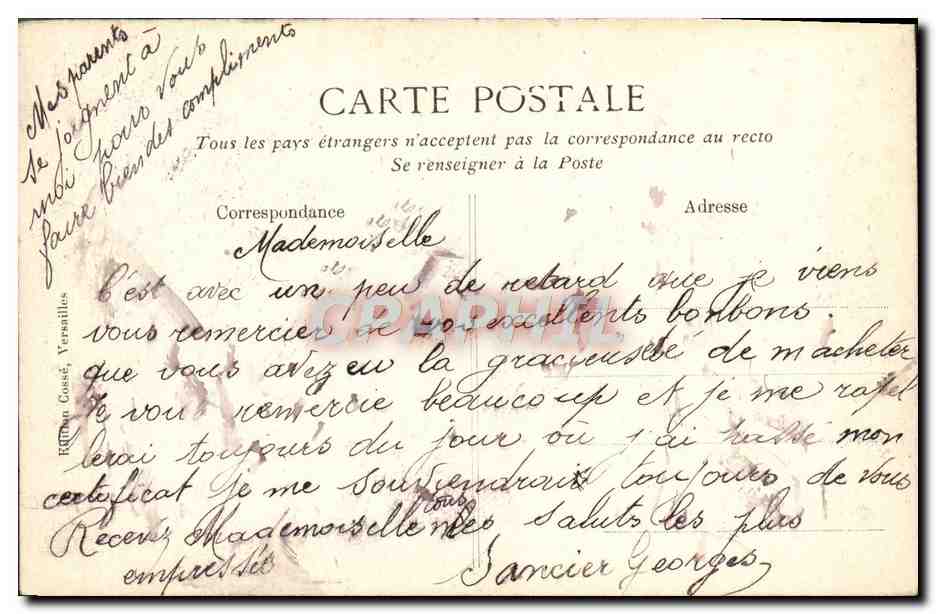 Mes parents
se joignent à
moi pour vous
faire bien des compliments
CARTE POSTALE
Tous les pays étrangers n'acceptent pas la correspondance au recto
Se renseigner à la Poste
Correspondance
Adresse
Mademoiselle
C'est avec un peu de retard que je viens
vous remercier de vos excellents bonbons.
que vous avez eu la gracieuseté de m'acheter
Je vous remercie beaucoup et je me rapel
lerai toujours du jour où j'ai passé mon
certificat je me souviendrais toujours de vous
Recevez Mademoiselle tous mes saluts les plus
empressés
Sancier Georges
Edition Cossé, Versailles
CPAPHIL